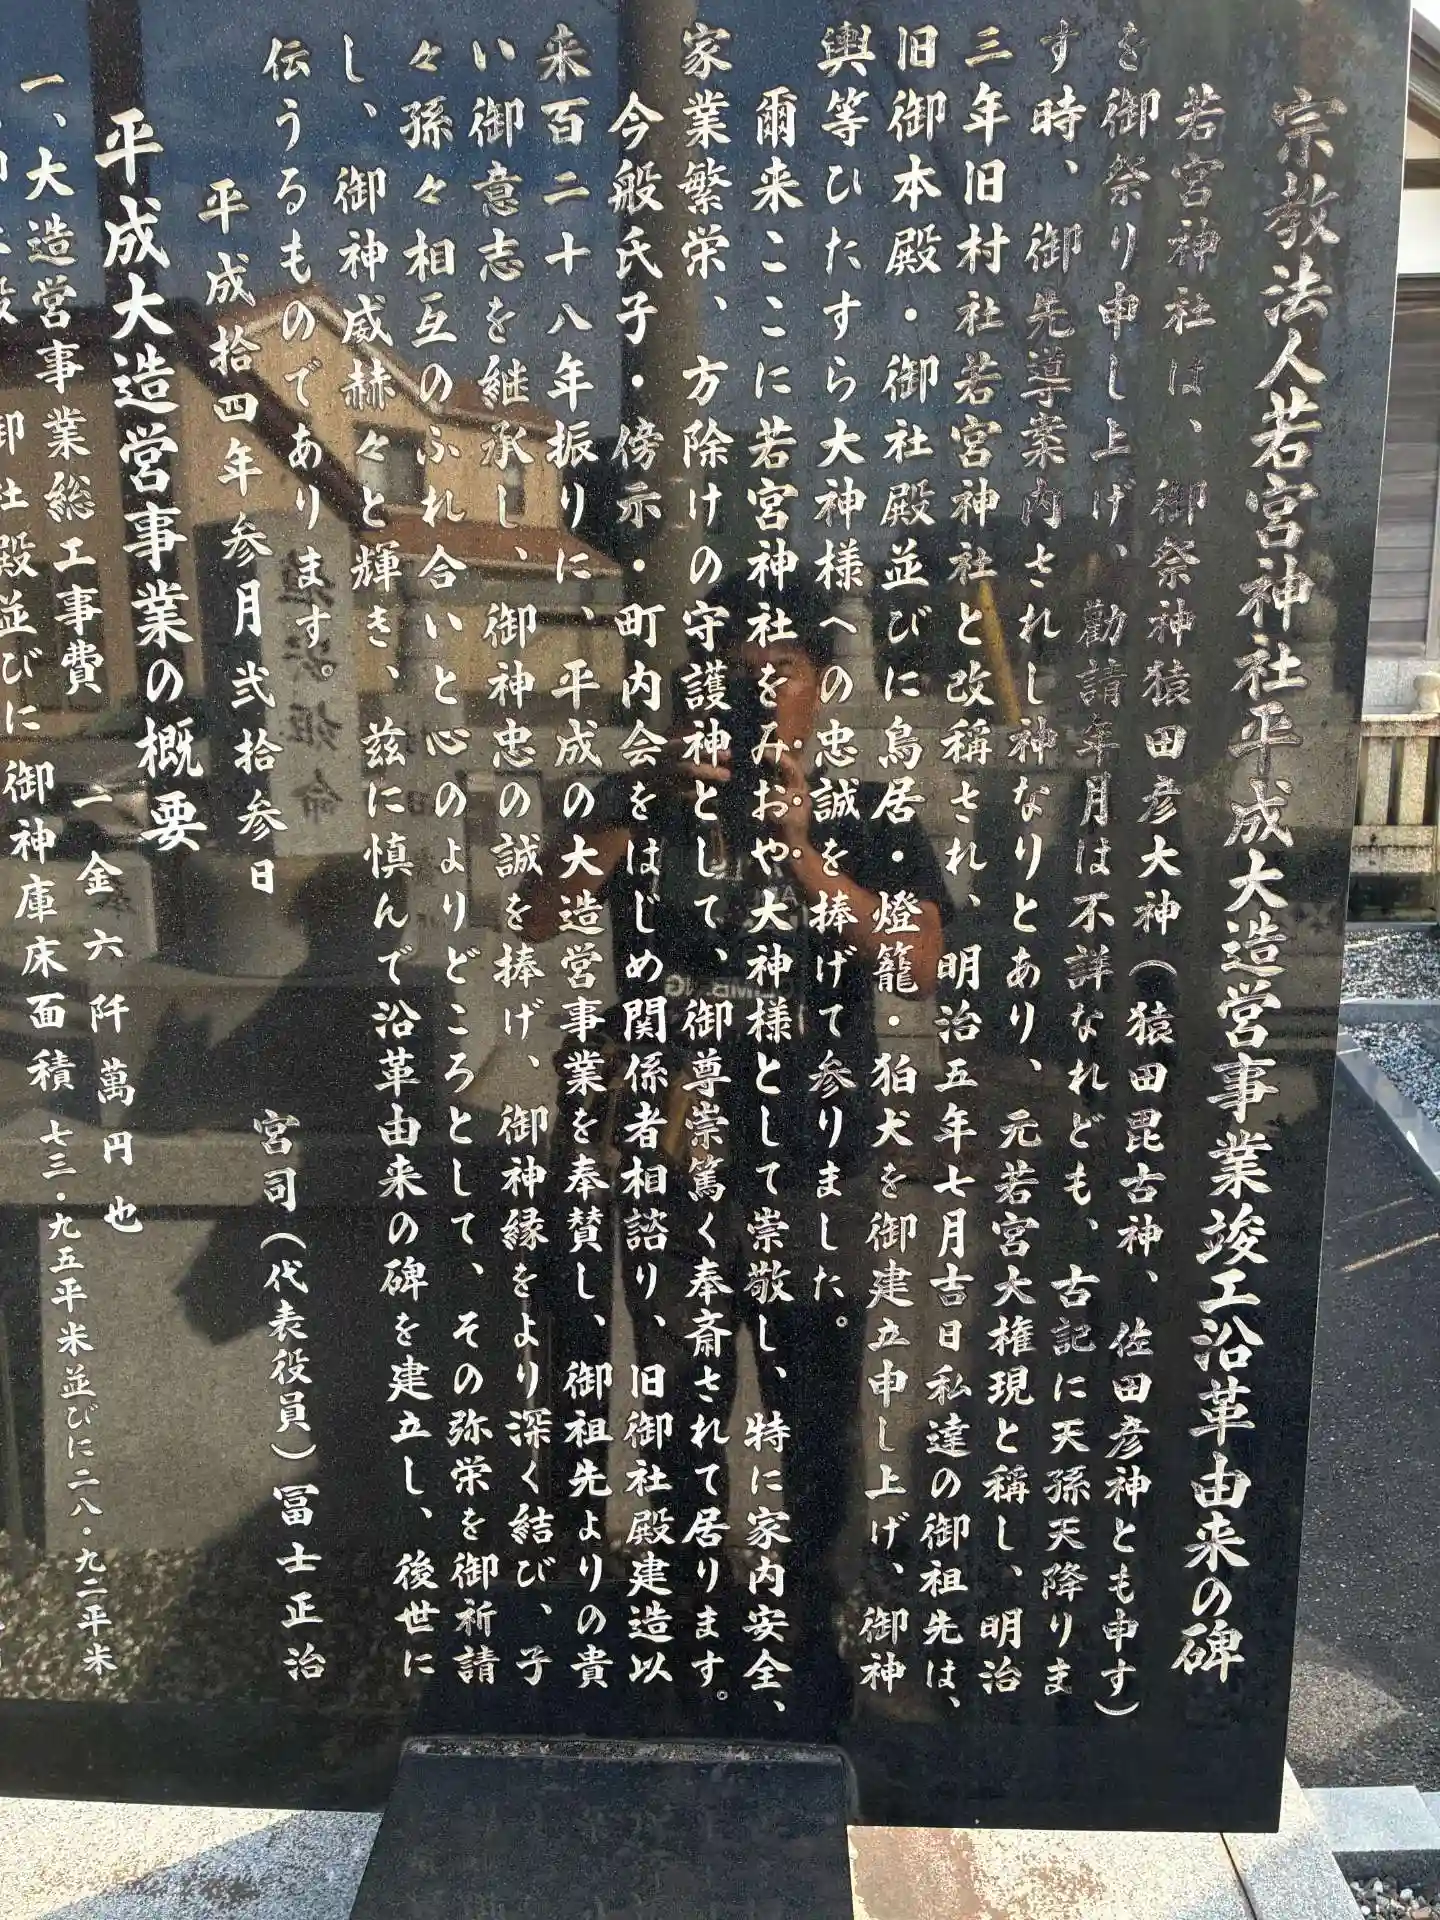 宗教法人若宮神社平成大造営事業竣工沿革由来の碑
若宮神社は、御祭神猿田彦大神（猿田毘古神、佐田彦神とも申す）
を御祭り申し上げ、勸請年月は不詳なれども、古記に天孫天降りま
す時、御先導案内されし神なりとあり、元若宮大権現と稱し、明治
三年旧村社若宮神社と改稱され、明治五年七月吉日私達の御祖先は、
旧御本殿・御社殿並びに鳥居・燈籠・狛犬を御建立申し上げ、御神
輿等ひたすら大神様への忠誠を捧げて参りました。
爾来ここに若宮神社をみおや大神様として崇敬し、特に家内安全、
家業繁栄、方除けの守護神として、御尊崇篤く奉斎されて居ります。
今般氏子・傍示・町内会をはじめ関係者相諮り、旧御社殿建造以
来百二十八年振りに、平成の大造営事業を奉賛し、御祖先よりの貴
い御意志を継承し、御神忠の誠を捧げ、御神縁をより深く結び、子
々孫々相互のふれ合いと心のよりどころとして、その弥栄を御祈請
し、御神威赫々と輝き、茲に慎んで沿革由来の碑を建立し、後世に
伝うるものであります。
平成拾四年参月弐拾参日
宮司（代表役員）冨士正治
平成大造営事業の概要
一、大造営事業総工事費 一金六阡萬円也
御社殿並びに御神庫床面積 七三・九五平米並びに二八・九二平米